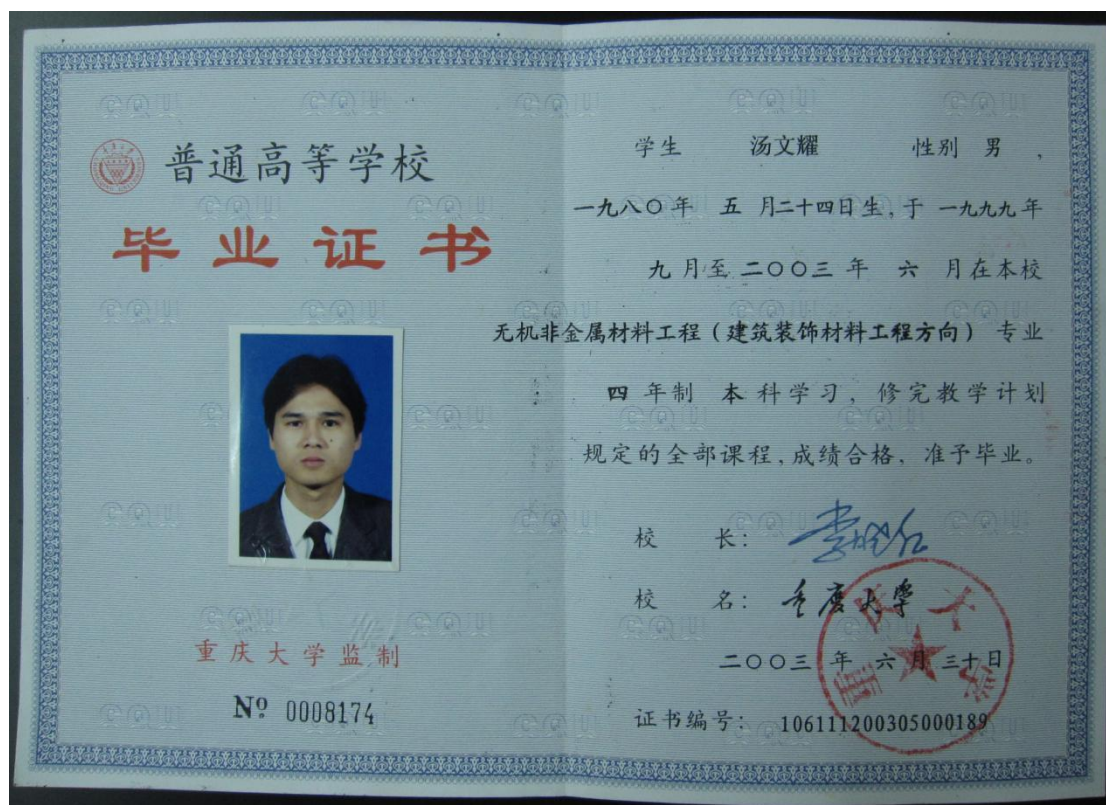 普通高等学校
毕业证书
重庆大学监制
Nº 0008174
学生 汤文耀 性别 男 ,
一九八〇年 五 月二十四日生,于 一九九九年
九 月至 二〇〇三 年 六 月在本校
无机非金属材料工程(建筑装饰材料工程方向) 专业
四 年制 本 科学习, 修完教学计划
规定的全部课程,成绩合格, 准予毕业。
校 长: 李晓红
校 名: 重庆大学
二〇〇三 年 六 月 三十日
重庆大学
证书编号: 106111200305000189
CQU